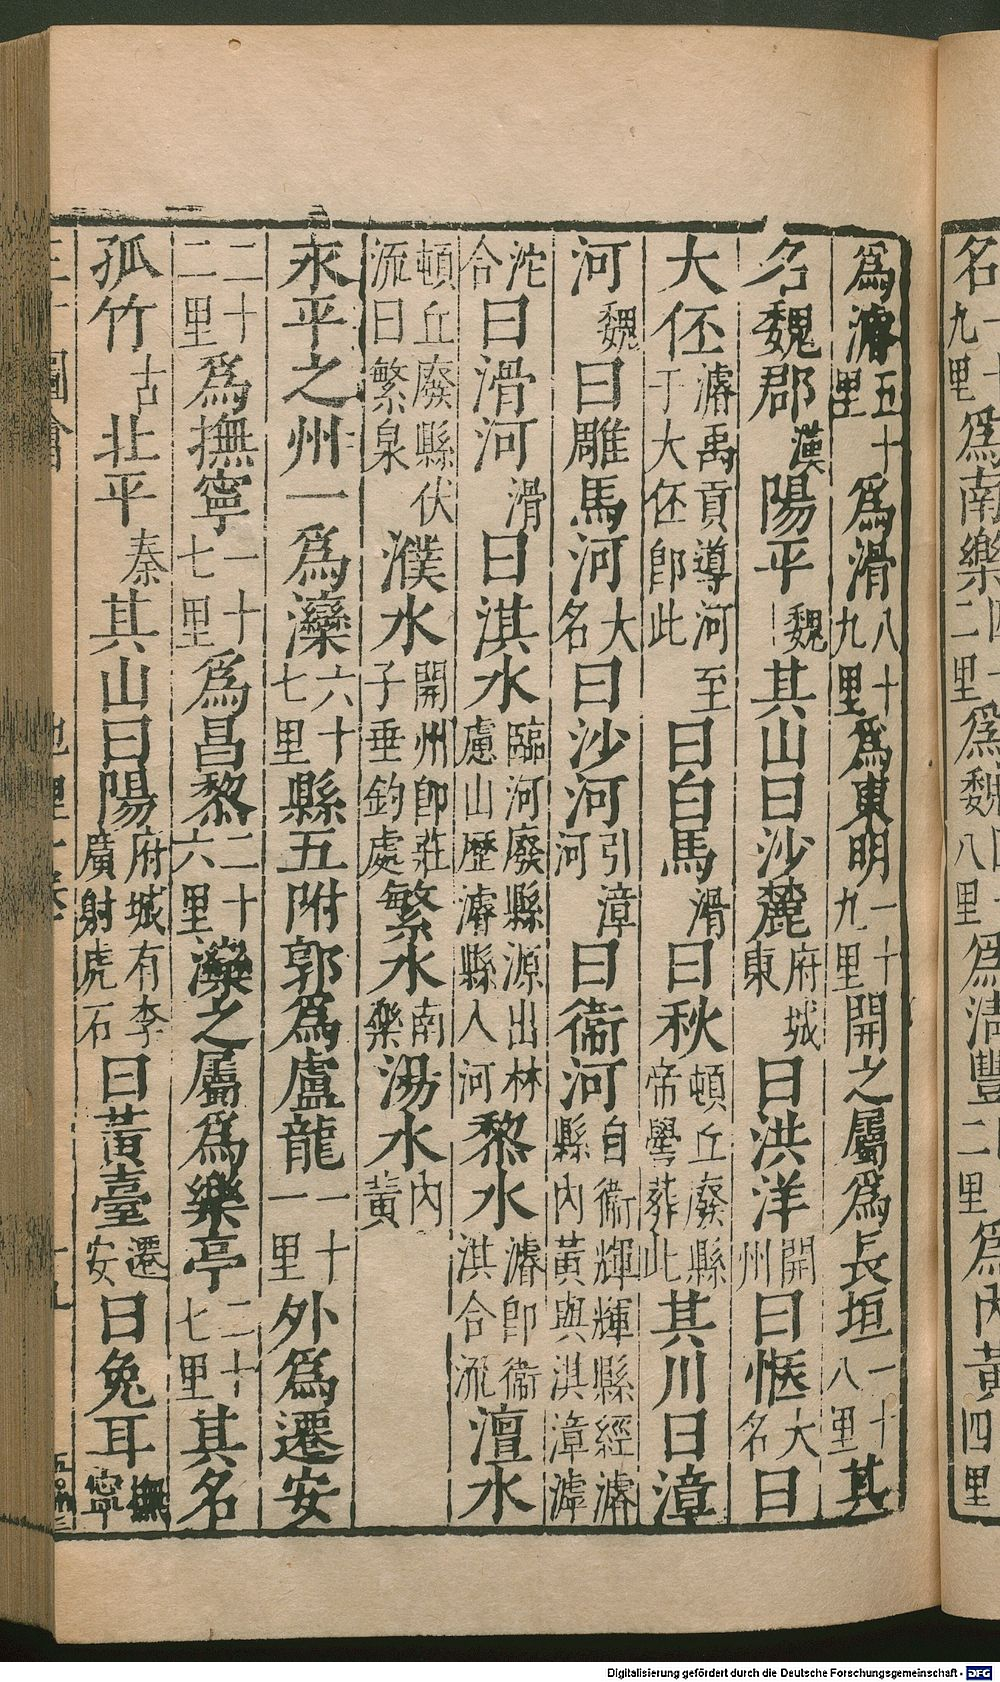 名　　九里爲南樂　　二里爲魏　　八里爲淸豐　　二里爲內黃四里
爲濬五十里爲滑八十九里爲東明一十九里開之屬爲長垣一十八里其
名魏郡漢陽平魏其山曰沙麓府城東曰洪洋開州曰愜大名曰
大伾濬禹貢導河至于大伾卽此曰白馬滑曰秋頓丘廢縣帝嚳葬此其川曰漳
河魏曰雕馬河大名曰沙河引漳河曰衞河自衞輝輝縣經濬縣內黃與淇漳滹
沱合曰滑河滑曰淇水臨河廢縣源出林慮山歷濬縣入河黎水濬卽衞淇合流澶水
頓丘廢縣伏流曰繁泉濮水開州卽莊子垂釣處繁水南樂湯水內黃
永平之州一爲灤六十七里縣五附郭爲盧龍一十一里外爲遷安
二十二里爲撫寧一十七里爲昌黎二十六里灤之屬爲樂亭二十七里其名
孤竹古北平秦其山曰陽府城有李廣射虎石曰黃臺遷安曰兔耳撫寧
圖會　地理一卷　十九
Digitalisierung gefördert durch die Deutsche Forschungsgemeinschaft - DFG